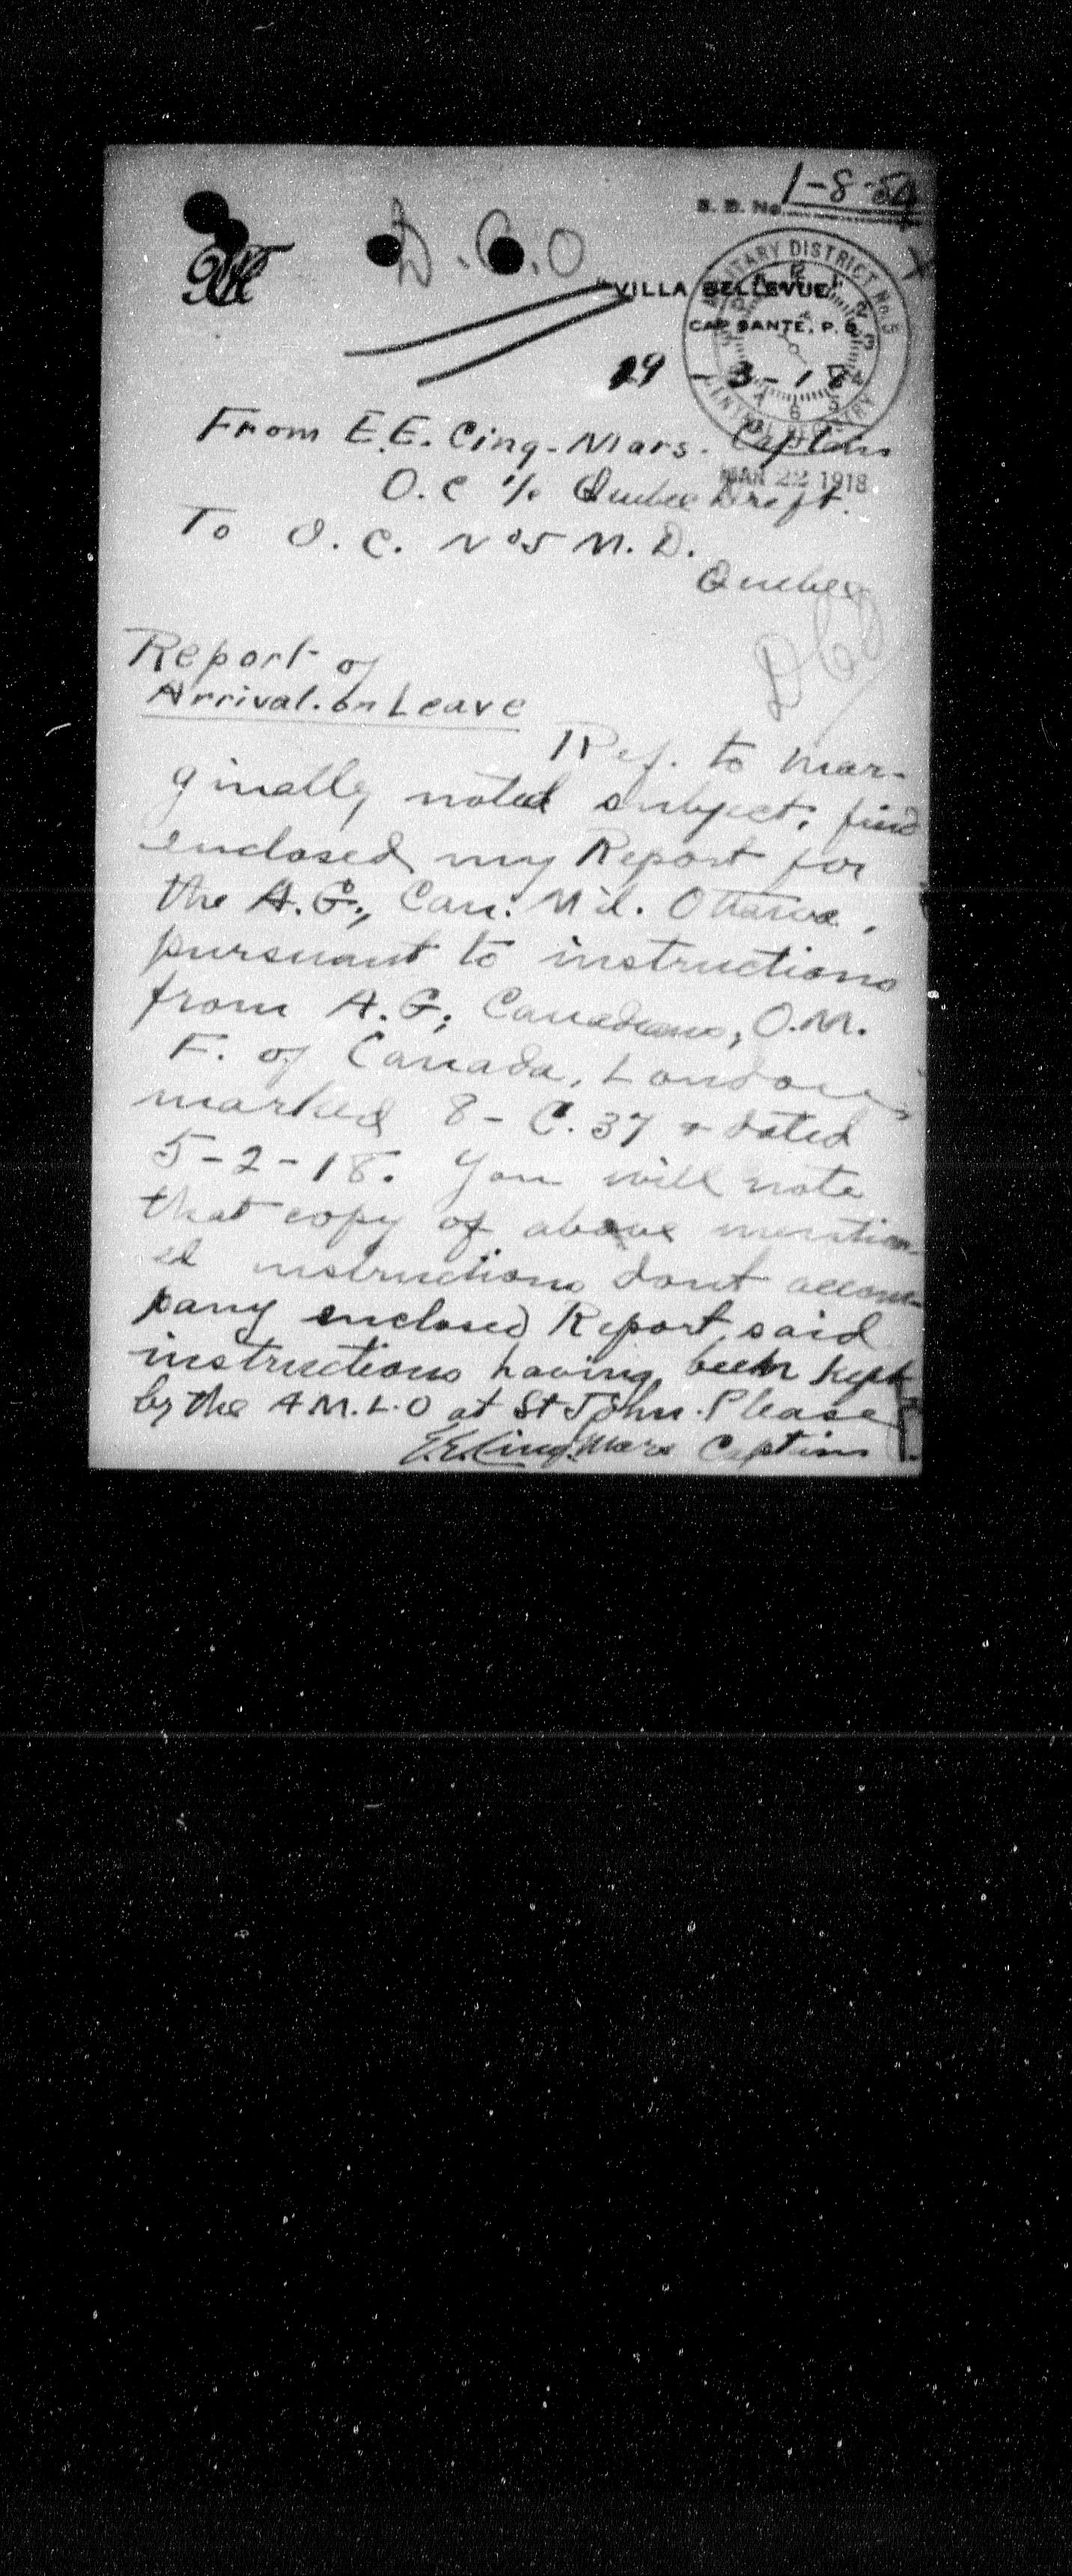 1-8-54
S. D. No.
D.C.O
"VILLA BELLEVUE"
CAP SANTE, P. Q.
MILITARY DISTRICT No. 5
CENTRAL REGISTRY
MAR 22 1918
19-3-18
From E.E. Cinq-Mars. Captain
O.C 1/c Quebec Draft.
To O.C. No5 M.D.
Quebec
Report of
Arrival on Leave
Ref. to mar-
ginally noted subject, find
enclosed my Report for
the A.G., Can. Mil. Ottawa,
pursuant to instructions
from A.G., Canadians, O.M.
F. of Canada, London,
marked 8-C.37 & dated
5-2-18. You will note
that copy of above mention-
ed instructions dont accom-
pany enclosed Report, said
instructions having been kept
by the A.M.L.O at St John. Please
E.E. Cinq-Mars Captain